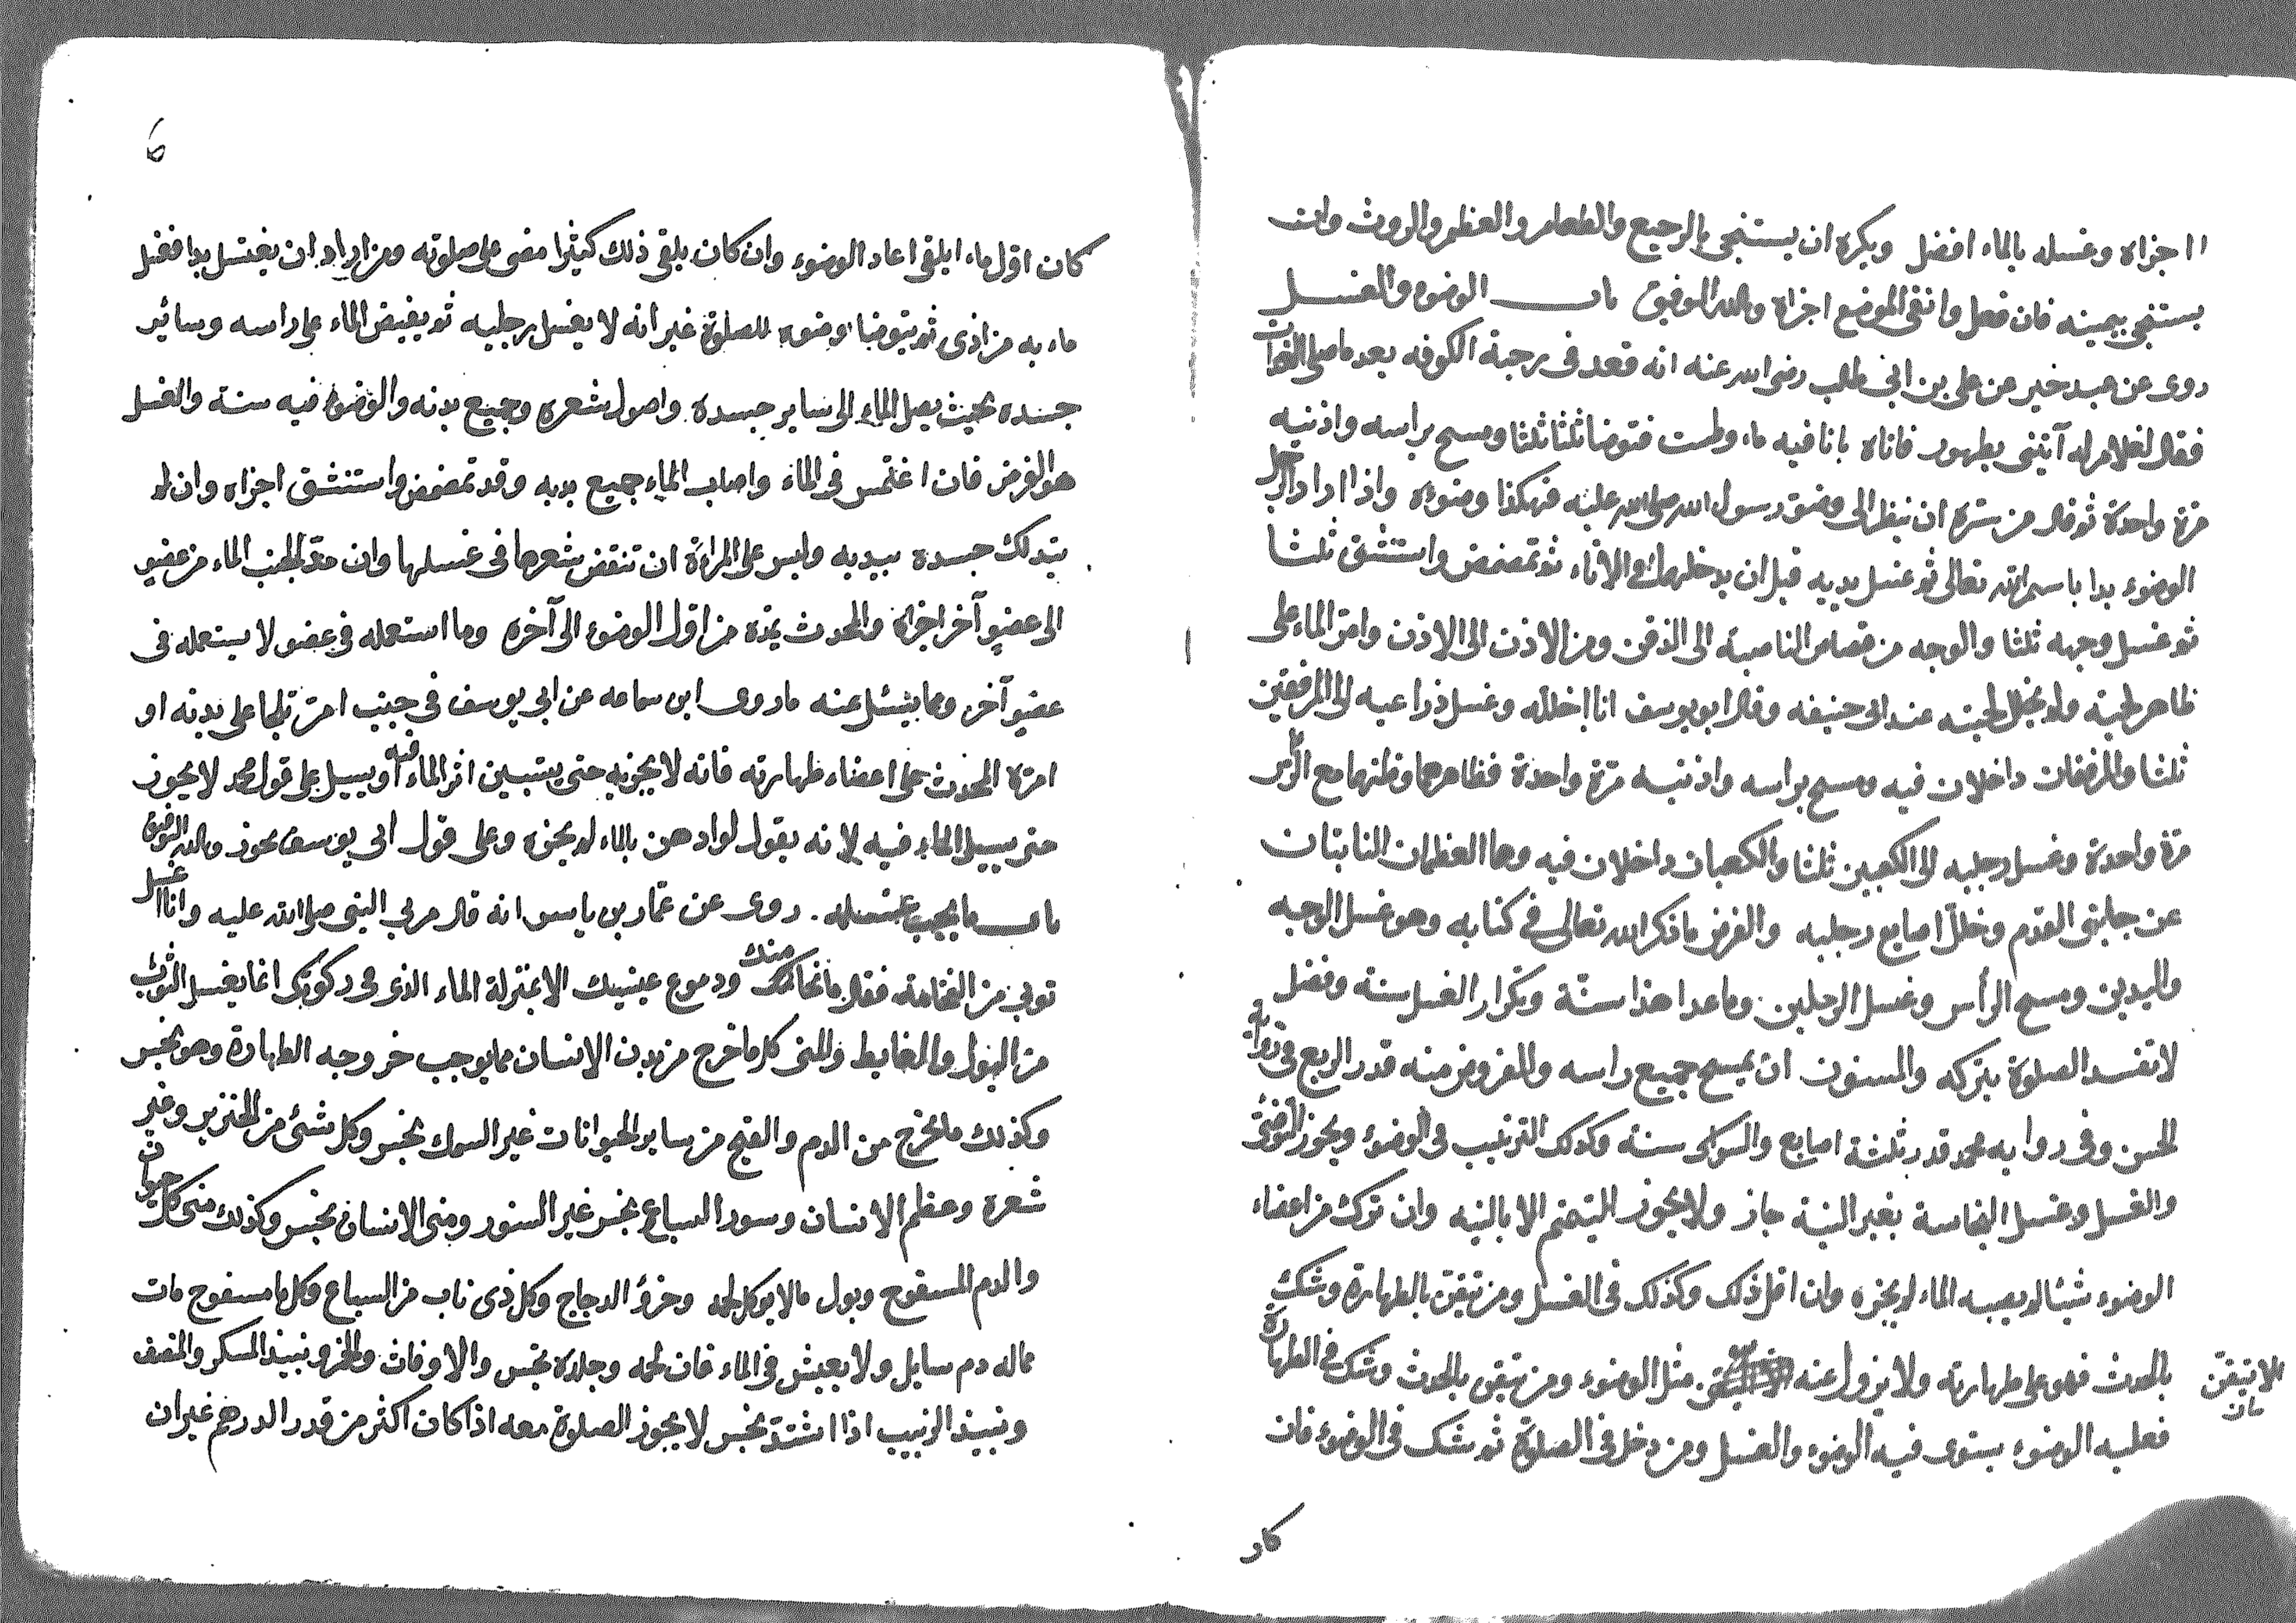 اجزاه وغسله بالماء افضل ويكره ان يستنجى بالرجيع والطعام والعظم والروث وان
يستنجى بيمينه فان فعل وانقى الموضع اجزاه والله الموفق باب الوضوء والغسل
روى عن عبد خير عن على بن ابى طالب رضى الله عنه انه قعد فى رحبة الكوفه بعد ما صلى الغداة
فقال لغلام له آيتنى بطهور فاتاه بانا فيه ماء وطست فتوضا ثلثا ثلثا ومسح براسه واذنيه
مرة واحدة ثم قال من سره ان ينظر الى وضوء رسول الله صلى الله عليه فهكذا وضوءه واذا اراد الرجل
الوضوء بدا باسم الله تعالى ثم غسل يديه قبل ان يدخلهما فى الاناء ثم تمضمض واستنشق ثلثا
ثم غسل وجهه ثلثا والوجه من قصاص الناصية الى الذقن ومن الاذن الى الاذن وامر الماء على
ظاهر لحيته ولم يخلل لحيته عند ابى حنيفه وقال ابو يوسف انا اخلله وغسل ذراعيه الى المرفقين
ثلثا والمرفقان داخلان فيه ومسح براسه واذنيه مرة واحدة فظاهرهما وباطنهما مع الراس
مرة واحدة وغسل رجليه الى الكعبين ثلثا والكعبان داخلان فيه وهما العظمان الناتيان
عن جانبى القدم وخلل اصابع رجليه والفرض ما ذكر الله تعالى فى كتابه وهو غسل الوجه
واليدين ومسح الرأس وغسل الرجلين وما عدا هذا سنة وتكرار الغسل سنة وفضل
لا تفسد الصلوة بتركه والمسنون ان يمسح جميع راسه والمفروض منه قدر الربع فى رواية
الحسن وفى رواية محمد قدر ثلثة اصابع والسواك سنة وكذلك الترتيب فى الوضوء ويجوز التوضى
والغسل وغسل النجاسة بغير النية جاز ولا يجوز التيمم الا بالنيه وان ترك من اعضاء
الوضوء شيئا لم يصبه الماء لم يجزه وان اقل ذلك وكذلك فى الغسل ومن تيقن بالطهارة وشك
بالحدث فهو على طهارته ولا يزول عنه مثل الوضوء ومن تيقن بالحدث وشك فى الطهارة
الا بتيقن
فعليه الوضوء يستوى فيه الوضوء والغسل ومن دخل فى الصلوة ثم شك فى الوضوء فان
كان
كان اول ما ابلقى اعاد الوضوء وان كان يلقى ذلك كثيرا مضى على صلوته ومن اراد ان يغتسل بدا فغسل
ما به من اذى ثم يتوضا وضوءه للصلوة غير انه لا يغسل رجليه ثم يفيض الماء على راسه وسائر
جسده بحيث يصل الماء الى ساير جسده واصول شعره وجميع بدنه والوضوء فيه سنة والغسل
هو الفرض فان اغتمس فى الماء واصاب الماء جميع بدنه وقد تمضمض واستنشق اجزاه وان لم
يتدلك جسده بيديه وليس على المراة ان تنقض شعرها فى غسلها وان مد الجنب الماء من عضو
الى عضو آخر اجزاه والمحدث يمده من اول الوضوء الى آخره وما استعمله فى عضو لا يستعمله فى
عضو آخر ومما يسئل عنه ما روى ابن سماعه عن ابى يوسف فى جنب امر ثلجا على بدنه او
امره المحدث على اعضاء طهارته فانه لا يجزيه حتى يستبين اثر الماء فيه او يسيل على قول محمد لا يجوز
حتى يسيل الماء فيه لانه يقول لو ادهن بالماء لم يجزه وعلى قول ابى يوسف يجوز والله الموفق
باب ما يجب غسله روى عن عمار بن ياسر انه قال مر بى النبى صلى الله عليه وانا اغسل
ثوبى من النخامة فقال ما نخامتك ودموع عينيك الا بمنزلة الماء الذى فى ركوتك انما يغسل الثوب
من البول والغايط والمنى كل ما خرج من بدن الانسان مما يوجب خروجه الطهارة وهو نجس
وكذلك ما يخرج من الدم والقيح من ساير الحيوانات غير السمك نجس وكل شئ من الخنزير وغير
شعره وعظم الانسان وسور السباع نجس غير السنور ومنى الانسان نجس وكذلك منى كل حيوان
والدم المسفوح وبول ما لا يوكل لحمه وخرؤ الدجاج وكل ذى ناب من السباع وكل ما مسفوح مات
مما له دم سايل ولا يعيش فى الماء فان لحمه وجلده نجس والخمر ونبيذ المسكر والمنصف
ونبيذ الزبيب اذا اشتد نجس لا يجوز الصلوة معه اذا كان اكثر من قدر الدرهم غير ان